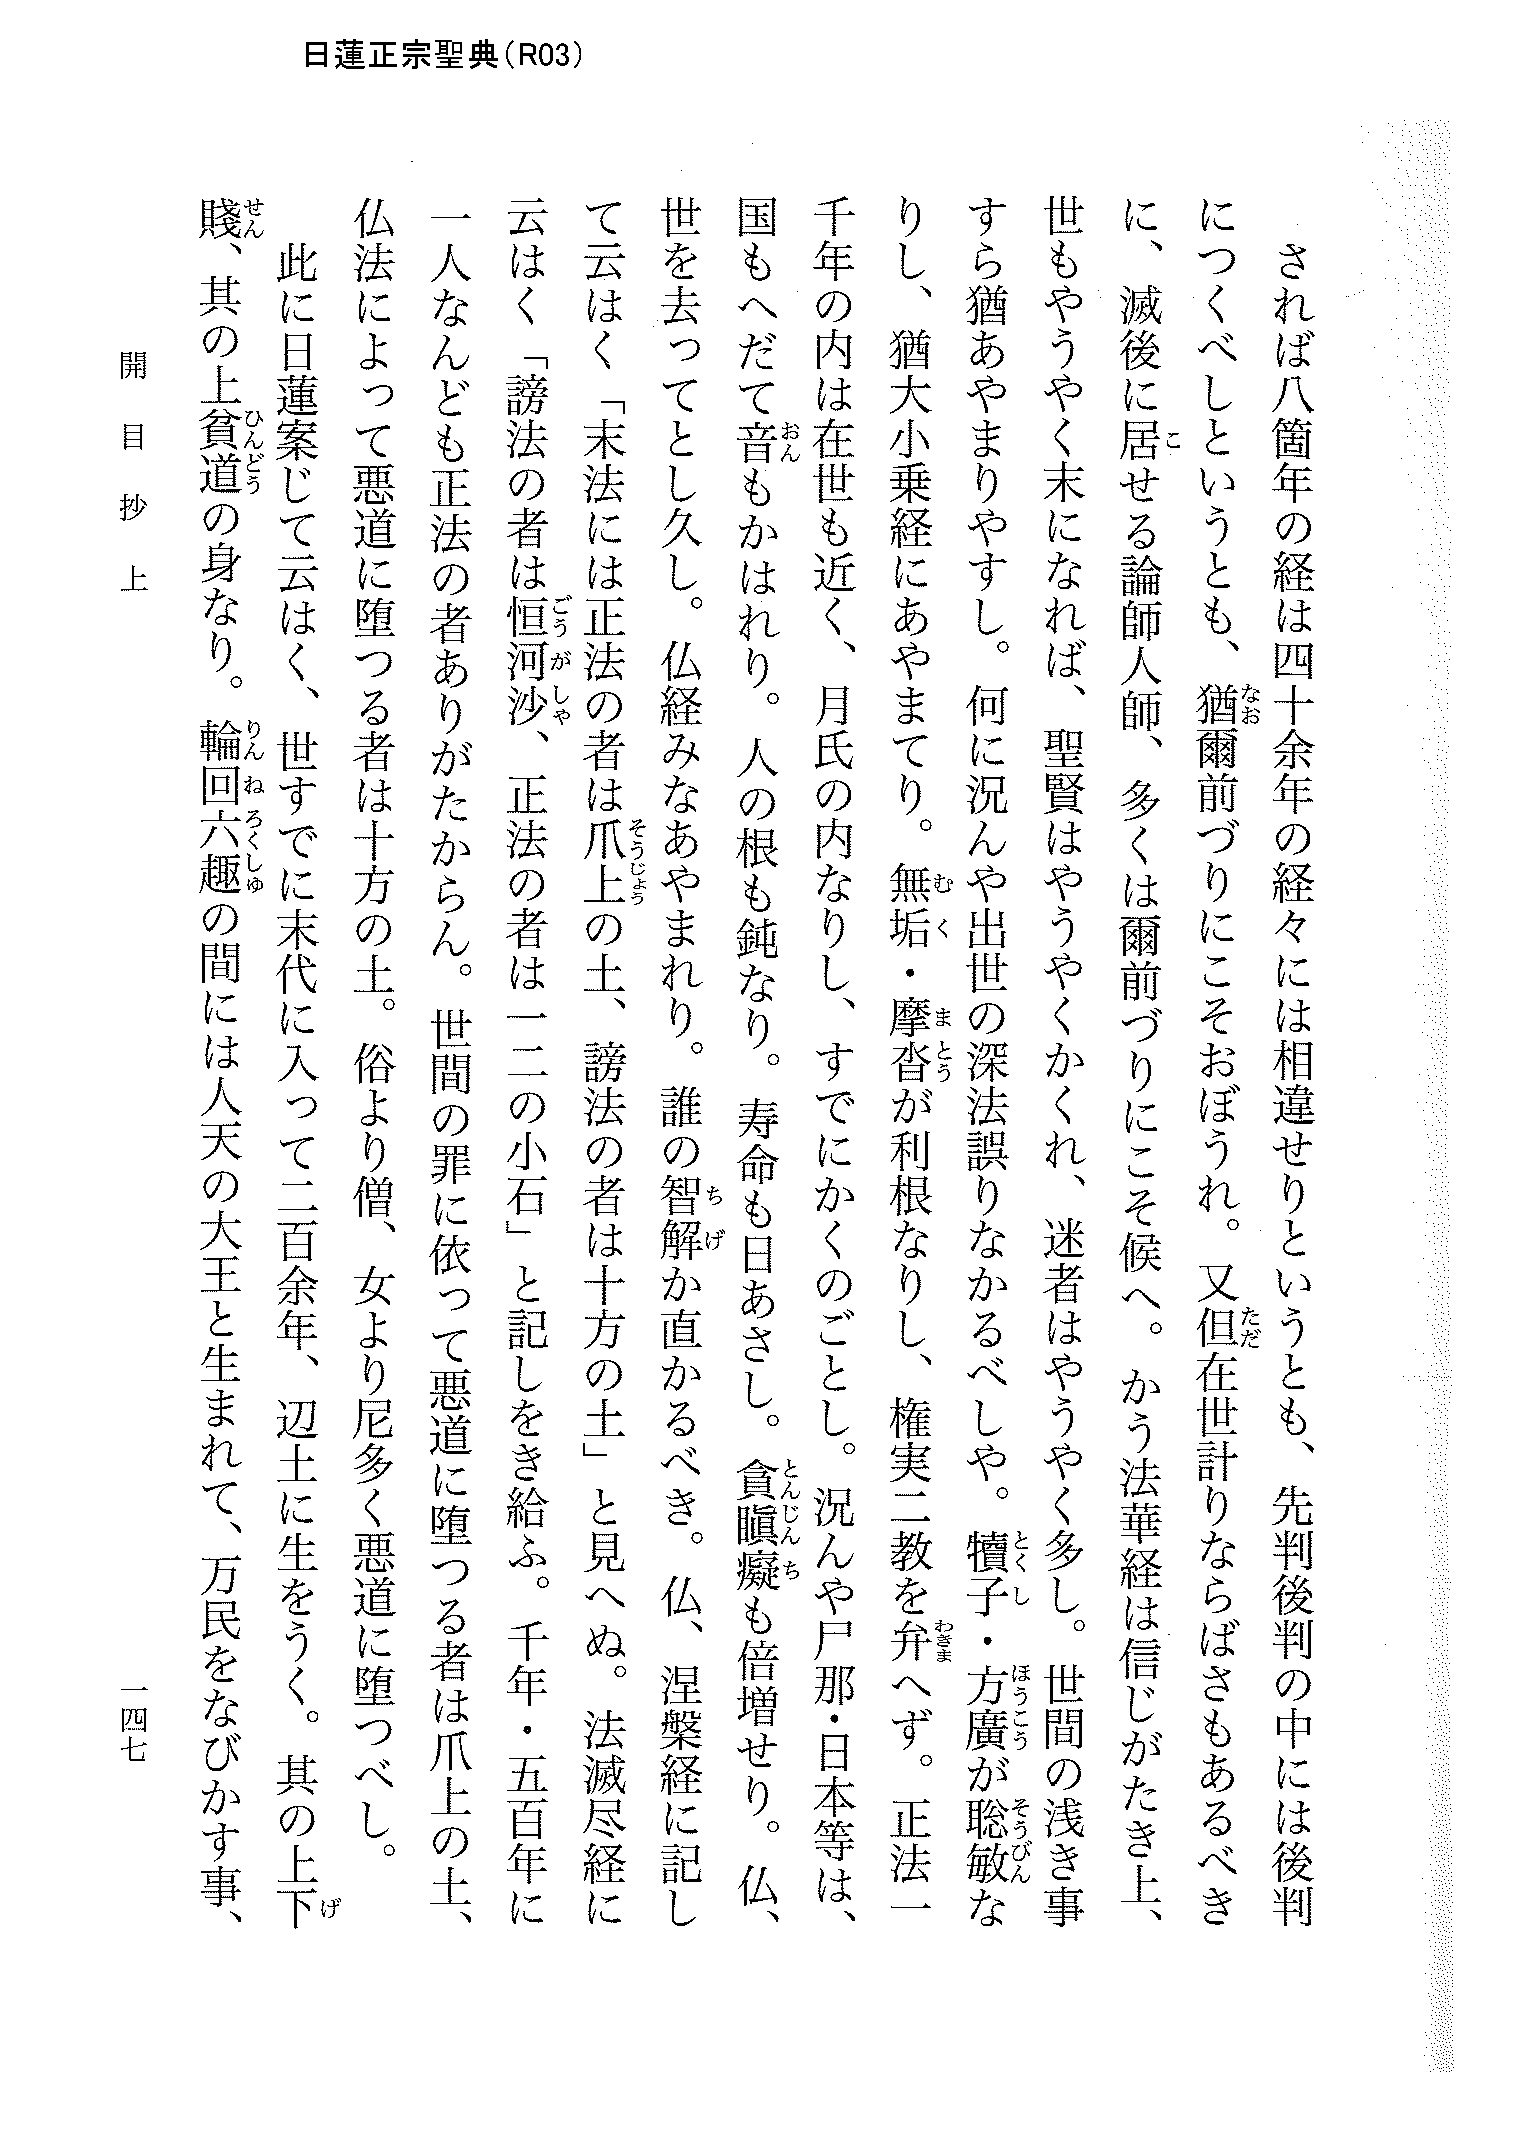 日蓮正宗聖典（R03）
されば八箇年の経は四十余年の経々には相違せりというとも、先判後判の中には後判
につくべしというとも、猶爾前づりにこそおぼうれ。又但在世計りならばさもあるべき
に、滅後に居せる論師人師、多くは爾前づりにこそ候へ。かう法華経は信じがたき上、
世もやうやく末になれば、聖賢はやうやくかくれ、迷者はやうやく多し。世間の浅き事
すら猶あやまりやすし。何に況んや出世の深法誤りなかるべしや。犢子・方廣が聡敏な
りし、猶大小乗経にあやまてり。無垢・摩沓が利根なりし、権実二教を弁へず。正法一
千年の内は在世も近く、月氏の内なりし、すでにかくのごとし。況んや尸那・日本等は、
国もへだて音もかはれり。人の根も鈍なり。寿命も日あさし。貪瞋癡も倍増せり。仏、
世を去ってとし久し。仏経みなあやまれり。誰の智解か直かるべき。仏、涅槃経に記し
て云はく「末法には正法の者は爪上の土、謗法の者は十方の土」と見へぬ。法滅尽経に
云はく「謗法の者は恒河沙、正法の者は一二の小石」と記しをき給ふ。千年・五百年に
一人なんども正法の者ありがたからん。世間の罪に依って悪道に堕つる者は爪上の土、
仏法によって悪道に堕つる者は十方の土。俗より僧、女より尼多く悪道に堕つべし。
此に日蓮案じて云はく、世すでに末代に入って二百余年、辺土に生をうく。其の上下
賤、其の上貧道の身なり。輪回六趣の間には人天の大王と生まれて、万民をなびかす事、
開目抄上
一四七